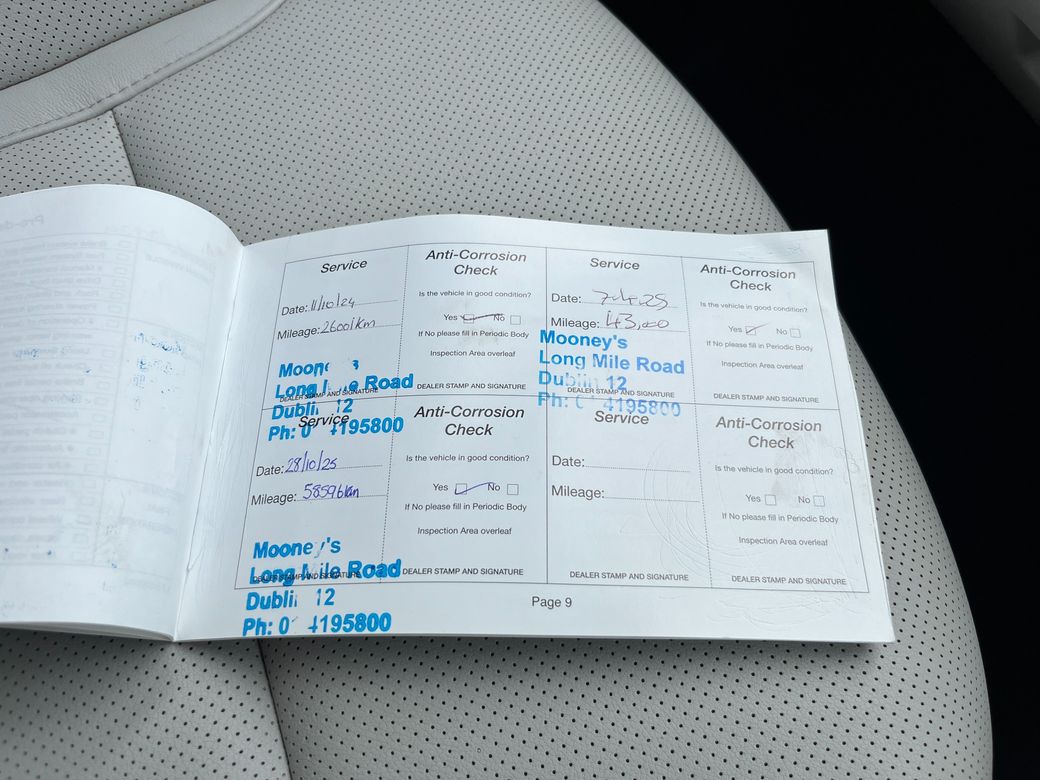 Service
Date: 11/10/24
Mileage: 26001km
Long Road
Dublin 12
Ph: 4195800
DEALER STAMP AND SIGNATURE
Anti-Corrosion
Check
Is the vehicle in good condition?
Yes No
If No please fill in Periodic Body
Inspection Area overleaf
DEALER STAMP AND SIGNATURE
Service
Date: 7.4.25
Mileage: 43,00
Mooney's
Long Mile Road
Dublin 12
Ph: 4195800
DEALER STAMP AND SIGNATURE
Anti-Corrosion
Check
Is the vehicle in good condition?
Yes No
If No please fill in Periodic Body
Inspection Area overleaf
DEALER STAMP AND SIGNATURE
Service
Date: 28/10/25
Mileage: 58596km
Mooney's
Long Mile Road
Dublin 12
Ph: 4195800
DEALER STAMP AND SIGNATURE
Anti-Corrosion
Check
Is the vehicle in good condition?
Yes No
If No please fill in Periodic Body
Inspection Area overleaf
DEALER STAMP AND SIGNATURE
Service
Date:
Mileage:
DEALER STAMP AND SIGNATURE
Anti-Corrosion
Check
Is the vehicle in good condition?
Yes No
If No please fill in Periodic Body
Inspection Area overleaf
DEALER STAMP AND SIGNATURE
Page 9